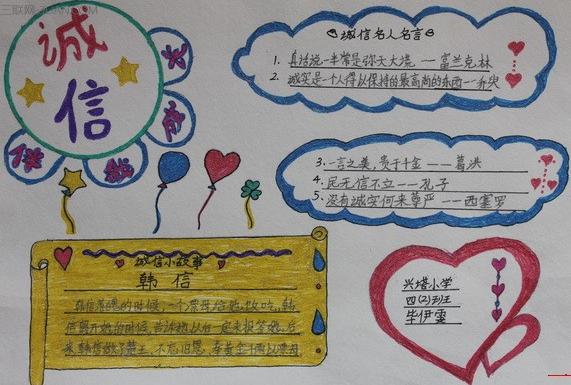 诚
信
诚信名人名言
1. 真话说一半常是弥天大谎 — 富兰克林
2. 诚实是一个人得以保持的最高尚的东西 — 乔叟
3. 一言之美，贵于千金 —— 葛洪
4. 民无信不立 —— 孔子
5. 没有诚实何来尊严 —— 西塞罗
诚信小故事
韩信
韩信落魄的时候，一个漂母给他做吃，韩
信离开她的时候，告诉她从后一定来报答她，后
来韩信做了楚王，不忘旧恩，奉黄金千两以
兴塔小学
四(2)班
毕伊雯